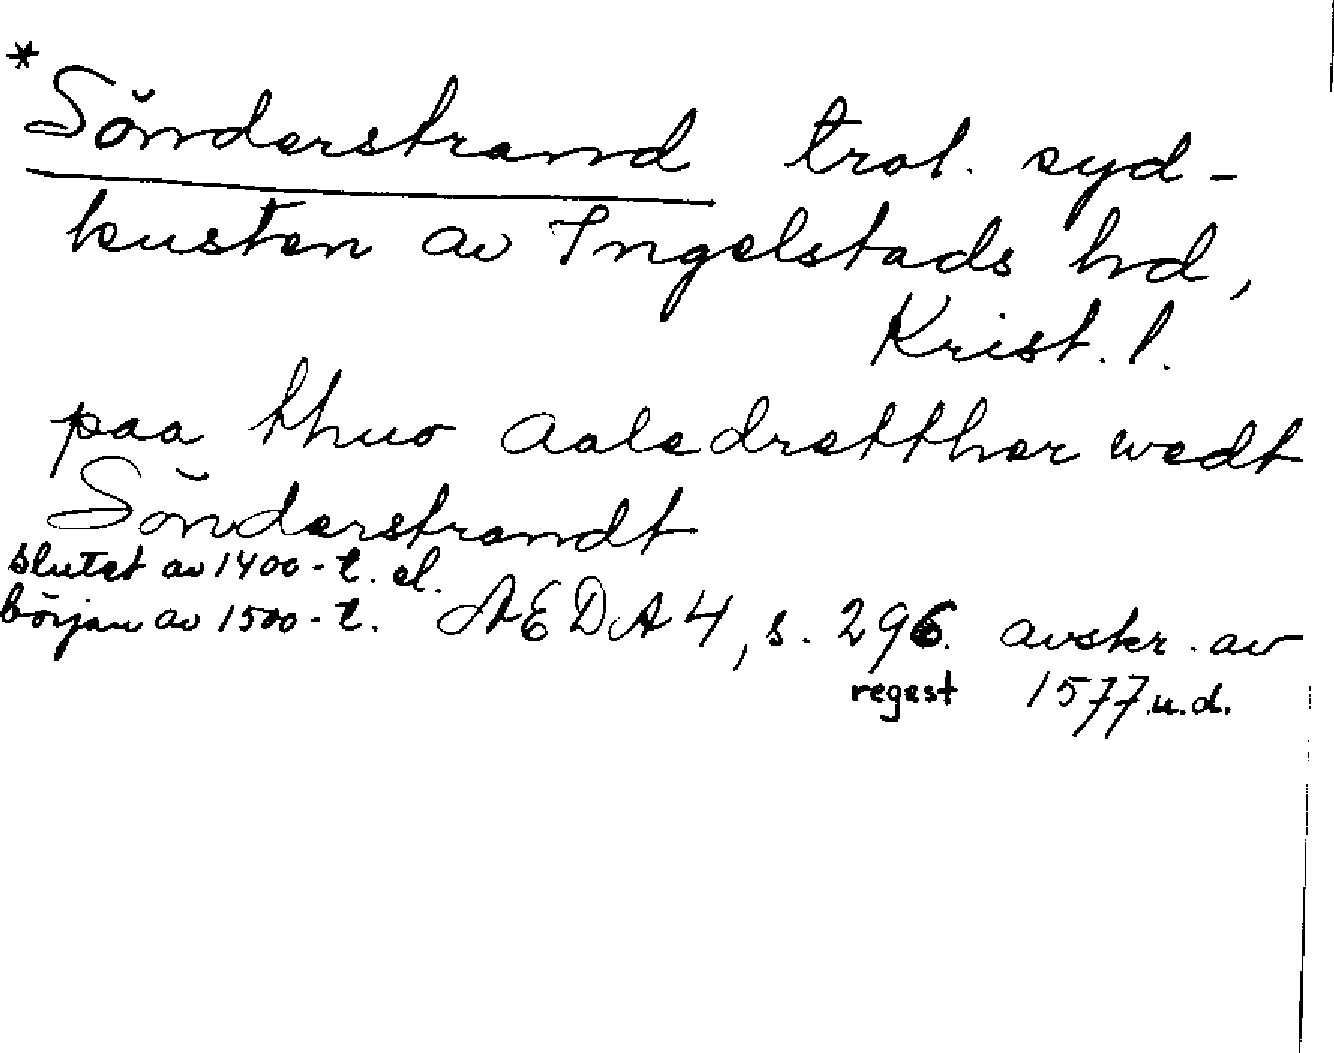 *Sönderstrand trol. syd-
kusten av Ingelstads hd,
Krist. l.
paa thuo aaledretther wedt
Sönderstrandt
slutet av 1400-t. el.
början av 1500-t. AEDA 4, s. 296. avskr. av
regest 1577 u.d.